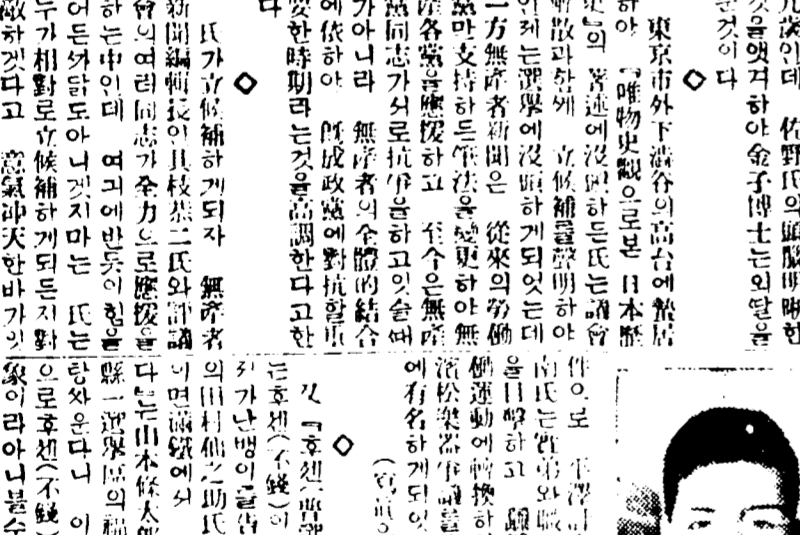 九歲인데 佐野氏의頭腦明晰한
것을앳겨하야金子博士는외딸을
준것이다
◇
東京市外下澁谷의高台에蟄居
하야 『唯物史觀으로본 日本歷
史』의 著述에沒頭하든氏는議會
解散과함께 立候補를聲明하야
인제는選擧에沒頭하게되엇는데
一方無産者新聞은 從來의勞働
黨만支持하든筆法을變更하야無
産各黨을應援하고 至今은無産
黨同志가서로抗爭을하고잇슬때
가아니라 無産者의全體的結合
에依하야 旣成政黨에對抗할重
要한時期라는것을高調한다고한
다
◇
氏가立候補하게되자 無産者
新聞編輯長인是枝恭二氏와評議
會의여러同志가全力으로應援을
하는中인데 여긔에반듯이힘을
어든까닭도아니겟지마는 氏는
누가相對로立候補하게되든지對
敵하겟다고 意氣冲天한바가잇
件으로 平澤計
南氏는實弟와職
을目擊하고
働運動에轉換하
濱松樂器爭議를
에有名하게되엇
(寫眞은
◇
것 『후센(
는후센(不錢)이
리가난뱅이
의田村仙之助氏
이면滿鐵에서
다』는山本條太郞
縣一選擧區의福
탕싸운다니 이
으로후센(不錢)
象이라아니볼수